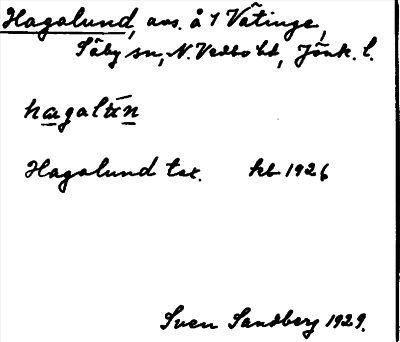 Hagalund, avs. å 1 Vätinge,
Säby sn, N. Vedbo hd, Jönk. l.
Hagalund tsx. hb 1926
Sven Sandberg 1929.